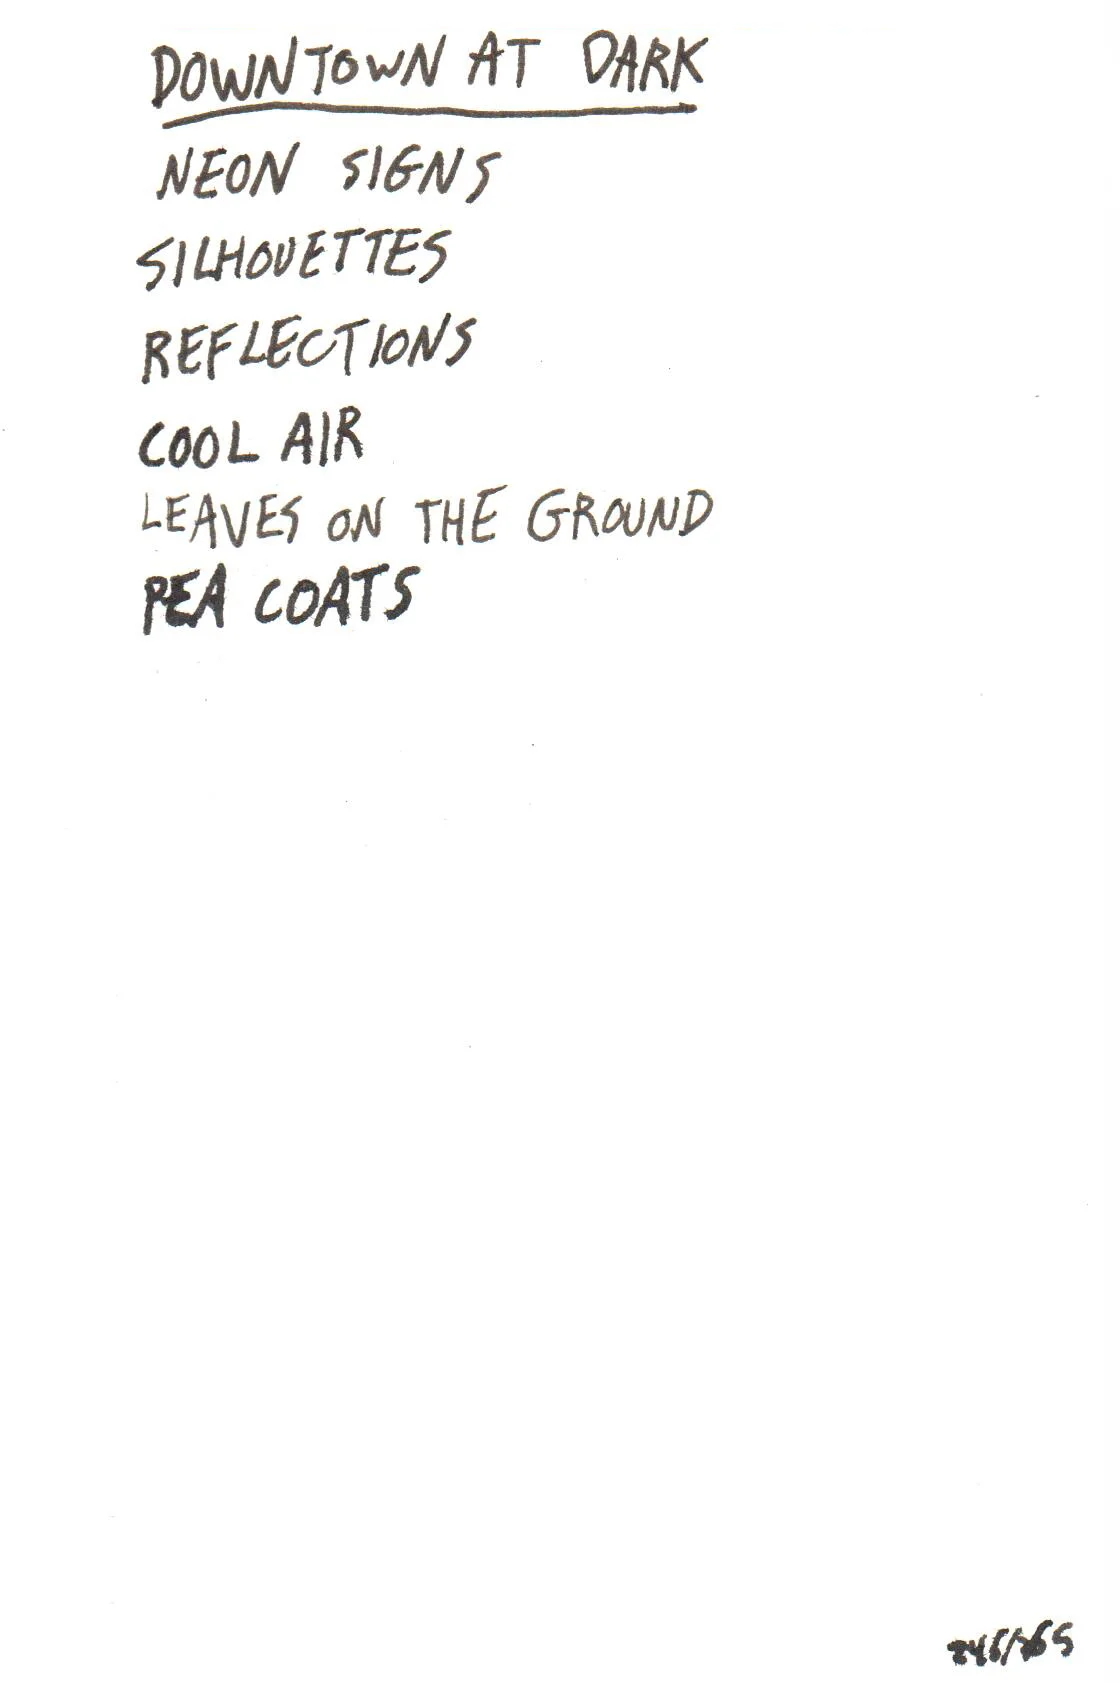 DOWNTOWN AT DARK
NEON SIGNS
SILHOUETTES
REFLECTIONS
COOL AIR
LEAVES ON THE GROUND
PEA COATS